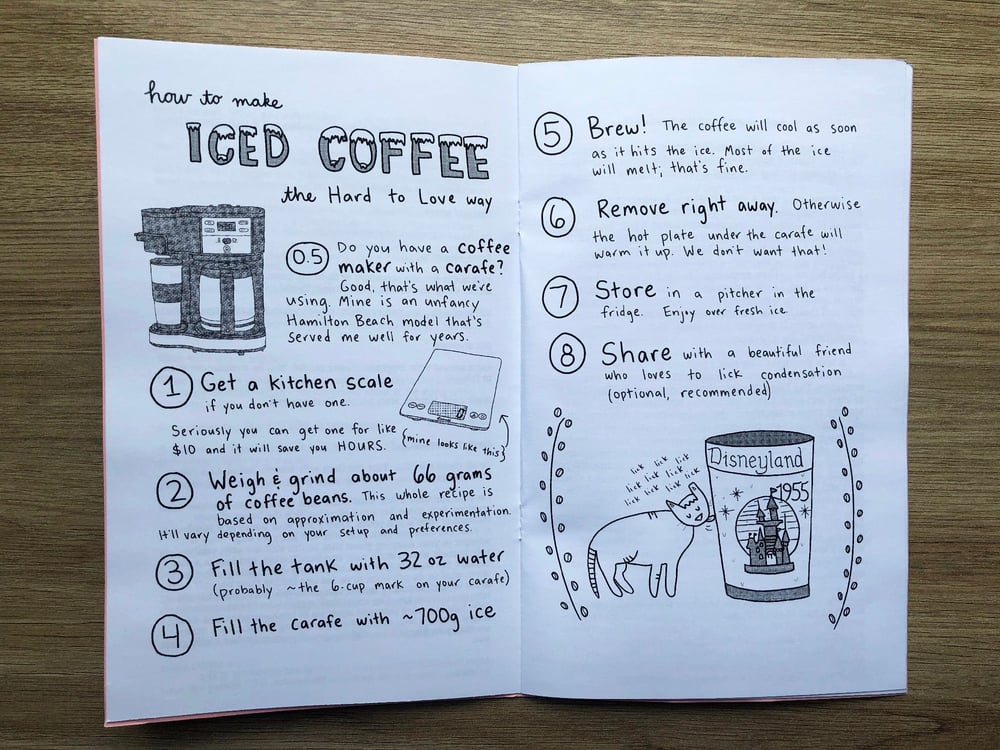 how to make
ICED COFFEE
the Hard to Love way
0.5 Do you have a coffee
maker with a carafe?
Good, that's what we're
using. Mine is an unfancy
Hamilton Beach model that's
served me well for years.
1 Get a kitchen scale
if you don't have one.
Seriously you can get one for like
$10 and it will save you HOURS.
{mine looks like this}
2 Weigh & grind about 66 grams
of coffee beans. This whole recipe is
based on approximation and experimentation.
It'll vary depending on your setup and preferences.
3 Fill the tank with 32 oz water
(probably ~the 6-cup mark on your carafe)
4 Fill the carafe with ~700g ice
5 Brew! The coffee will cool as soon
as it hits the ice. Most of the ice
will melt; that's fine.
6 Remove right away. Otherwise
the hot plate under the carafe will
warm it up. We don't want that!
7 Store in a pitcher in the
fridge. Enjoy over fresh ice.
8 Share with a beautiful friend
who loves to lick condensation
(optional, recommended)
lick lick lick
lick lick lick lick
lick lick lick lick
Disneyland
1955